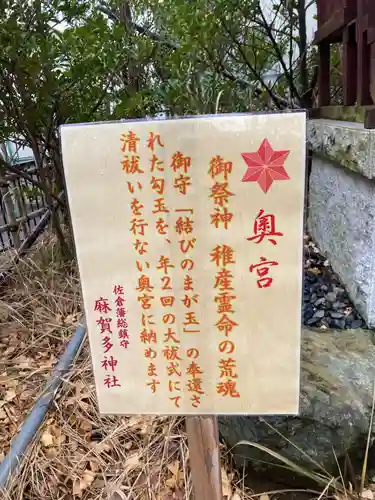 奥宮
御祭神　稚産霊命の荒魂
御守「結びのまが玉」の奉還さ
れた勾玉を、年2回の大祓式にて
清祓いを行ない奥宮に納めます
佐倉藩総鎮守
麻賀多神社